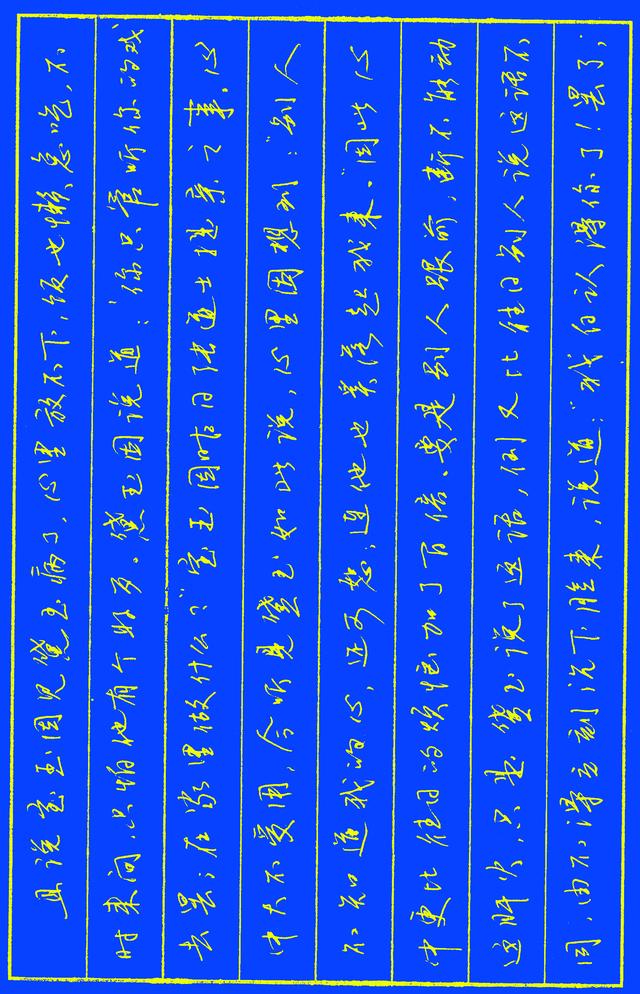 且说宝玉因见黛玉病了,心里放不下,饭也懒怠吃,不
时来问,只怕他有个好歹。黛玉因说道:“你只管听你的戏
去罢;在家里做什么?”宝玉因昨日张道士提亲之事,心
中大不受用,今听见黛玉如此说,心里因想到:“别人
不知道我的心,还可恕;连他也奚落起我来。”因此心
中更比往日的烦恼加了百倍。要是别人跟前,断不能动
这肝火,只是黛玉说了这话,倒又比往日别人说这话不
同,由不得立刻沉下脸来,说道:“我白认得你了!罢了,